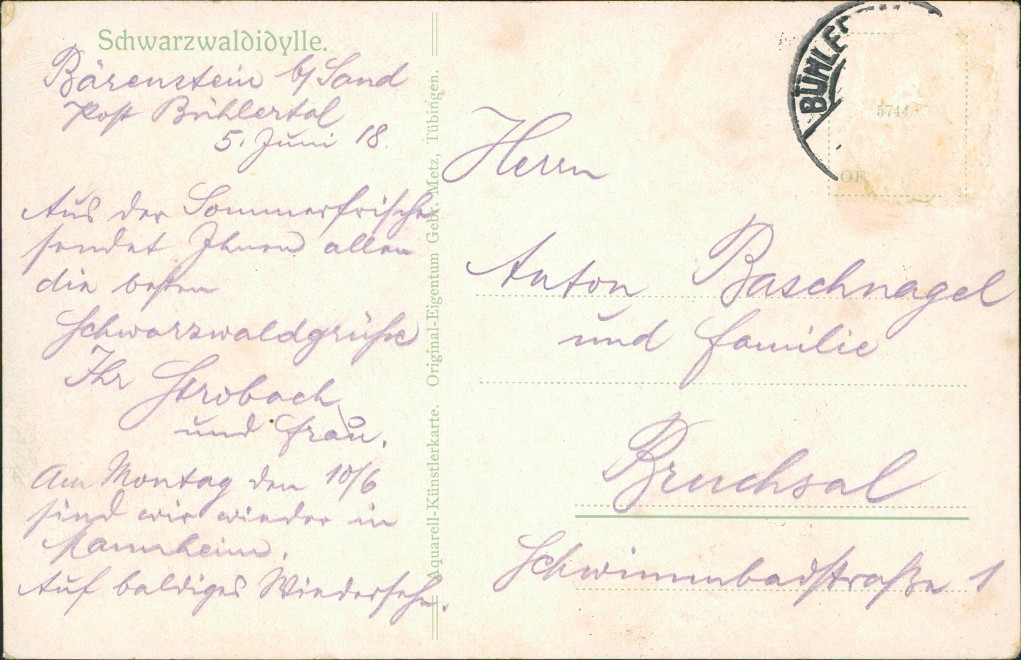 Schwarzwaldidylle.
Bärenstein b/ Sand
Post Bühlertal
5. Juni 18.
Aus der Sommerfrische
sendet Ihnen allen
die besten
Schwarzwaldgrüße
Ihr Strobach
und Frau.
Am Montag den 10/6
sind wir wieder in
Mannheim.
Auf baldiges Wiedersehn.
Aquarell-Künstlerkarte. Original-Eigentum Gebr. Metz, Tübingen.
BÜHLE
574
Herrn
Anton Baschnagel
und Familie
Bruchsal
Schwimmbadstraße 1